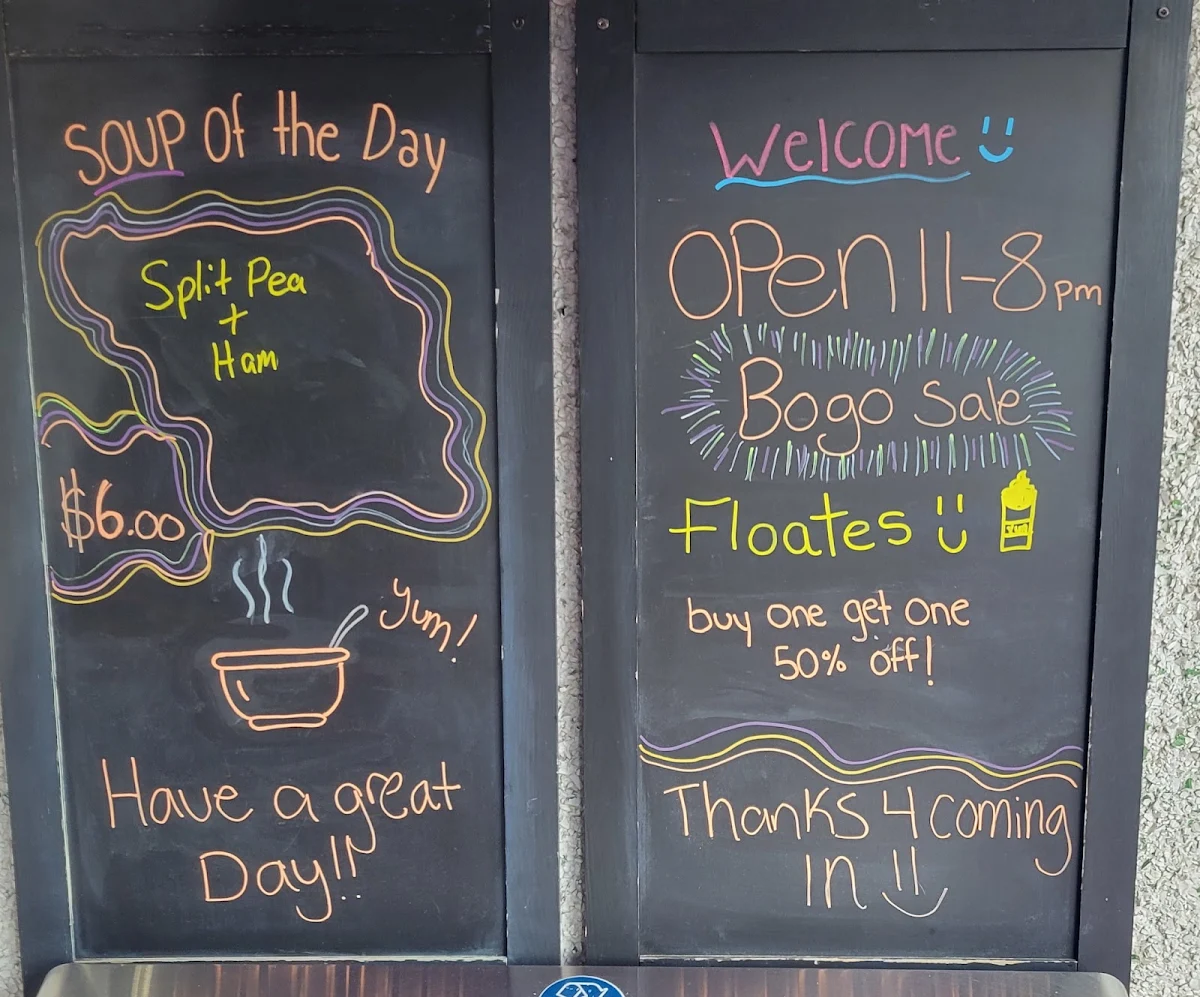 SOUP Of the Day
Split Pea
+
Ham
$6.00
Yum!
Have a great
Day!!!
Welcome
Open 11-8pm
Bogo Sale
Floates
buy one get one
50% off!
Thanks 4 coming
In !!